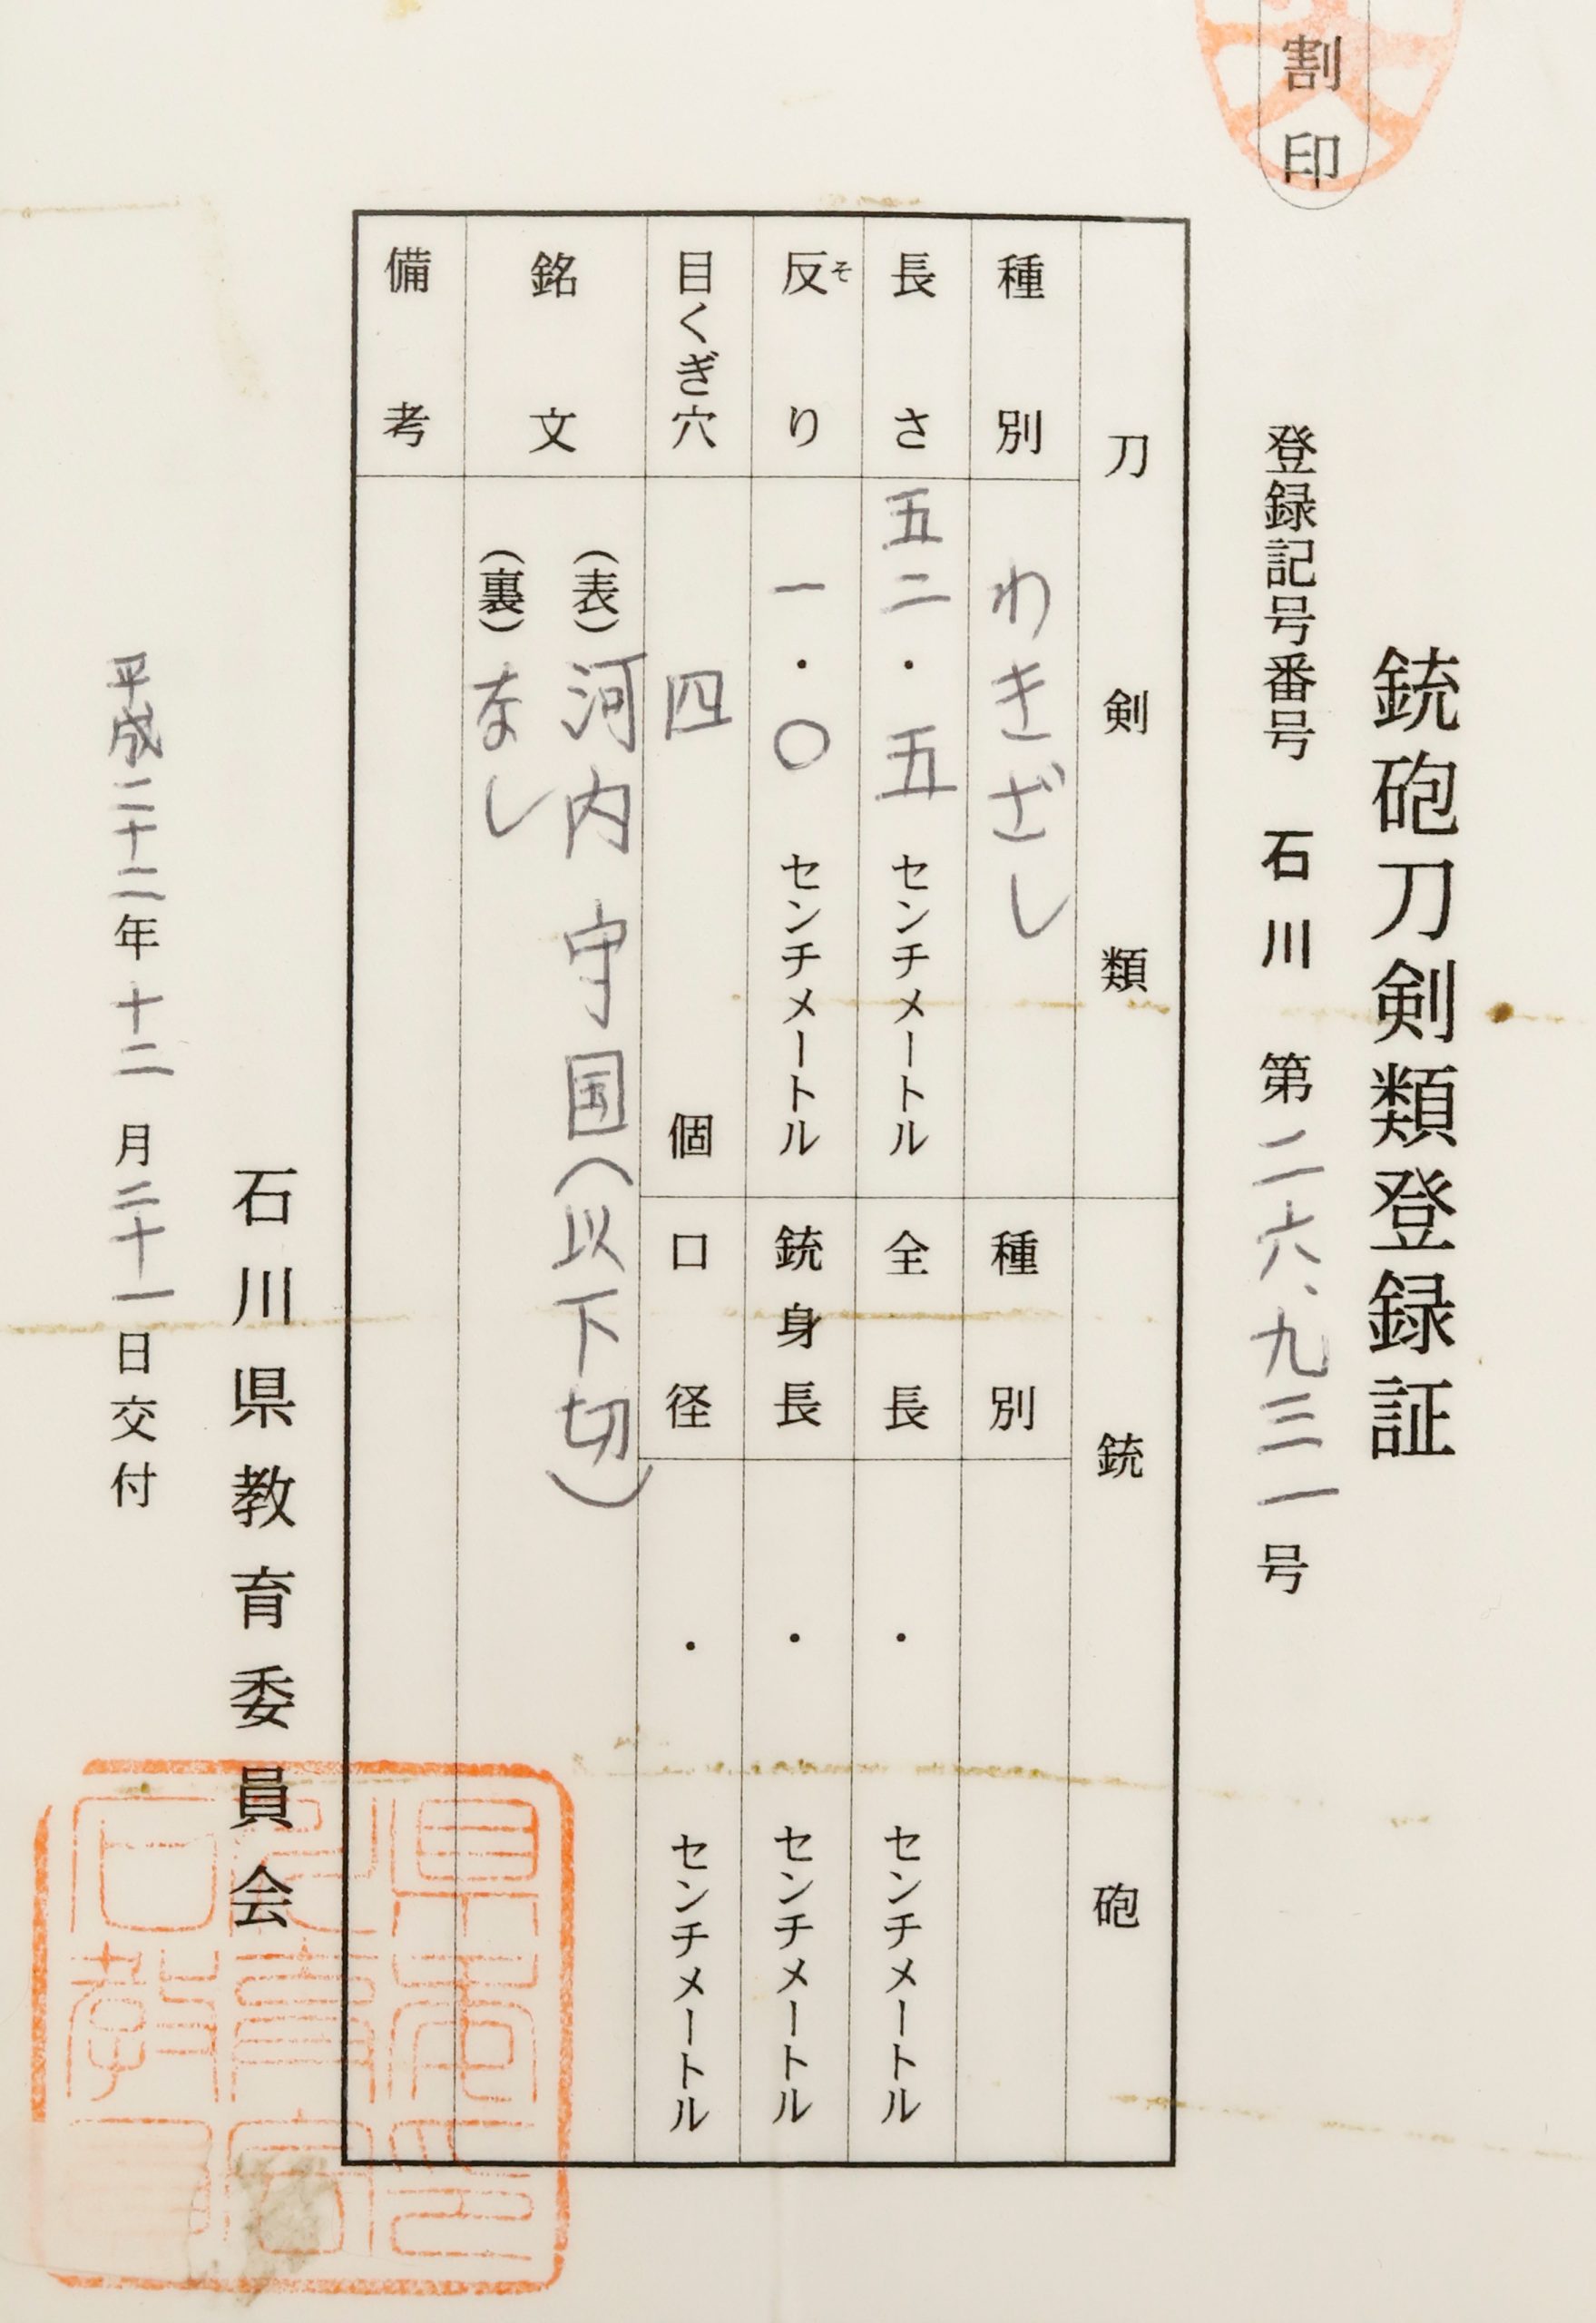 割印
銃砲刀剣類登録証
登録記号番号 石川 第二六、九三一号
刀剣類
銃砲
種別 わきざし
種別
長さ 五二・五 センチメートル
全長 ・ センチメートル
反り 一・〇 センチメートル
そ
銃身長 ・ センチメートル
目くぎ穴 四 個
口径 ・ センチメートル
銘文
(表) 河内守国(以下切)
(裏) なし
備考
石川県教育委員会
平成二十二年十二月二十一日交付